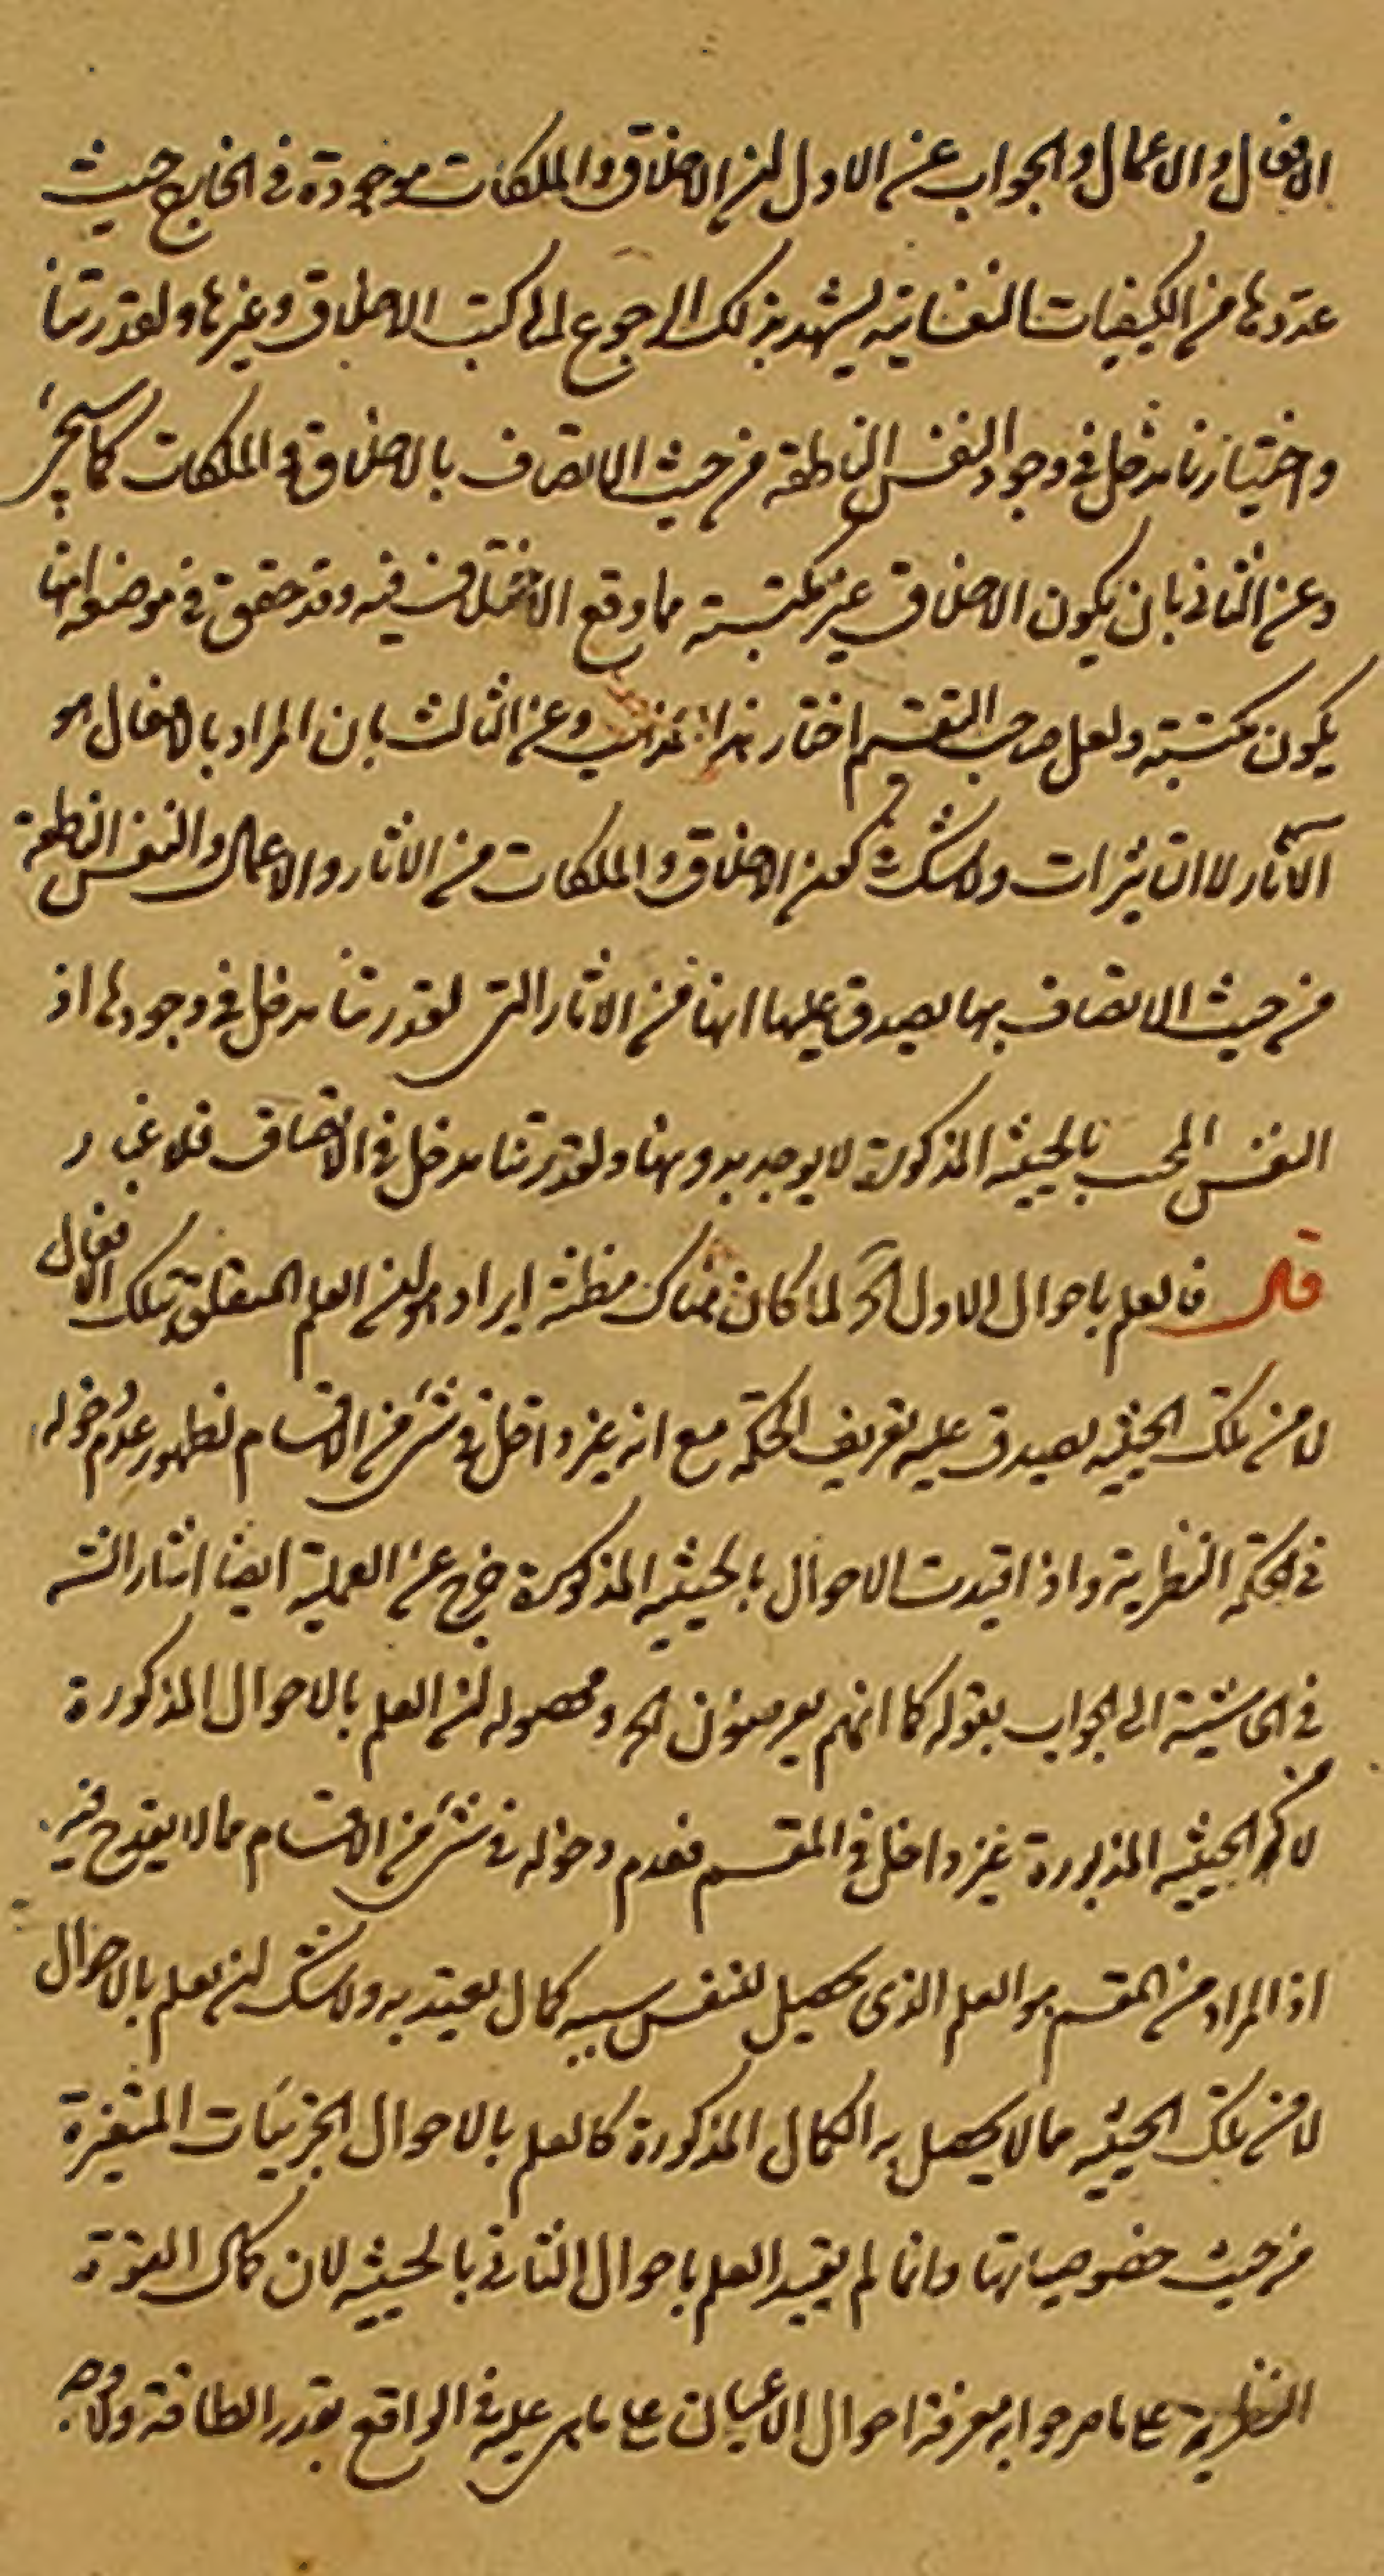 الافعال والاعمال والجواب عن الاول لن الاخلاق والملكات موجودة فى الخارج حيث
عدّدها من الكيفيات النفسانية يشهد بذلك الرجوع الى كتب الاخلاق وغيرها ولقدرتنا
واختيارنا مدخل فى وجود النفس الناطقة من حيث الاتصاف بالاخلاق والملكات كما سيجئ
وعن الثانى بان يكون الاخلاق غير مكتسبة مما وقع الاختلاف فيه وقد حقق فى موضعه انها
يكون مكتسبة ولعل صاحب التقسيم اختار هذا المذهب وعن الثالث بان المراد بالافعال هو
الآثار لا التاثيرات ولا شك فى كون الاخلاق والملكات من الاثار والاعمال والنفس الناطقة
من حيث الاتصاف بها يصدق عليها انها من الاثار التى لقدرتنا مدخل فى وجودها اذ
النفس بالحيثية المذكورة لا يوجد بدونها ولقدرتنا مدخل فى الاتصاف فلا غبار
قال فالعلم باحوال الاول آه لما كان هناك مظنة ايراد هو لن العلم المتعلق بتلك الافعال
لا من تلك الحيثية يصدق عليه تعريف الحكمة مع انه غير داخل فى شئ من الاقسام لظهور عدم دخوله
فى الحكمة النظرية واذا قيدت الاحوال بالحيثية المذكورة خرج عن العملية ايضا اشار الش
فى الحاشية الى الجواب بقوله كما انهم يعرضون الخ ومحصوله لن العلم بالاحوال المذكورة
لا من الحيثية المذبورة غير داخل فى المقسم فعدم دخوله فى شئ من الاقسام مما لا يقدح فيه
اذ المراد من المقسم هو العلم الذى يحصيل للنفس بسببه كمال يعتد به ولا شك لن لعلم بالاحوال
لا من تلك الحيثية مما لا يحصل به الكمال المذكورة كالعلم بالاحوال الجزئيات المتغيرة
من حيث خصوصياتها وانما لم يقيد العلم باحوال الثانى بالحيثية لان كمال القوة
النظرية على ما صرحوا به معرفة احوال الاعيان على ما هى عليه فى الواقع بقدر الطاقة ولا وجه